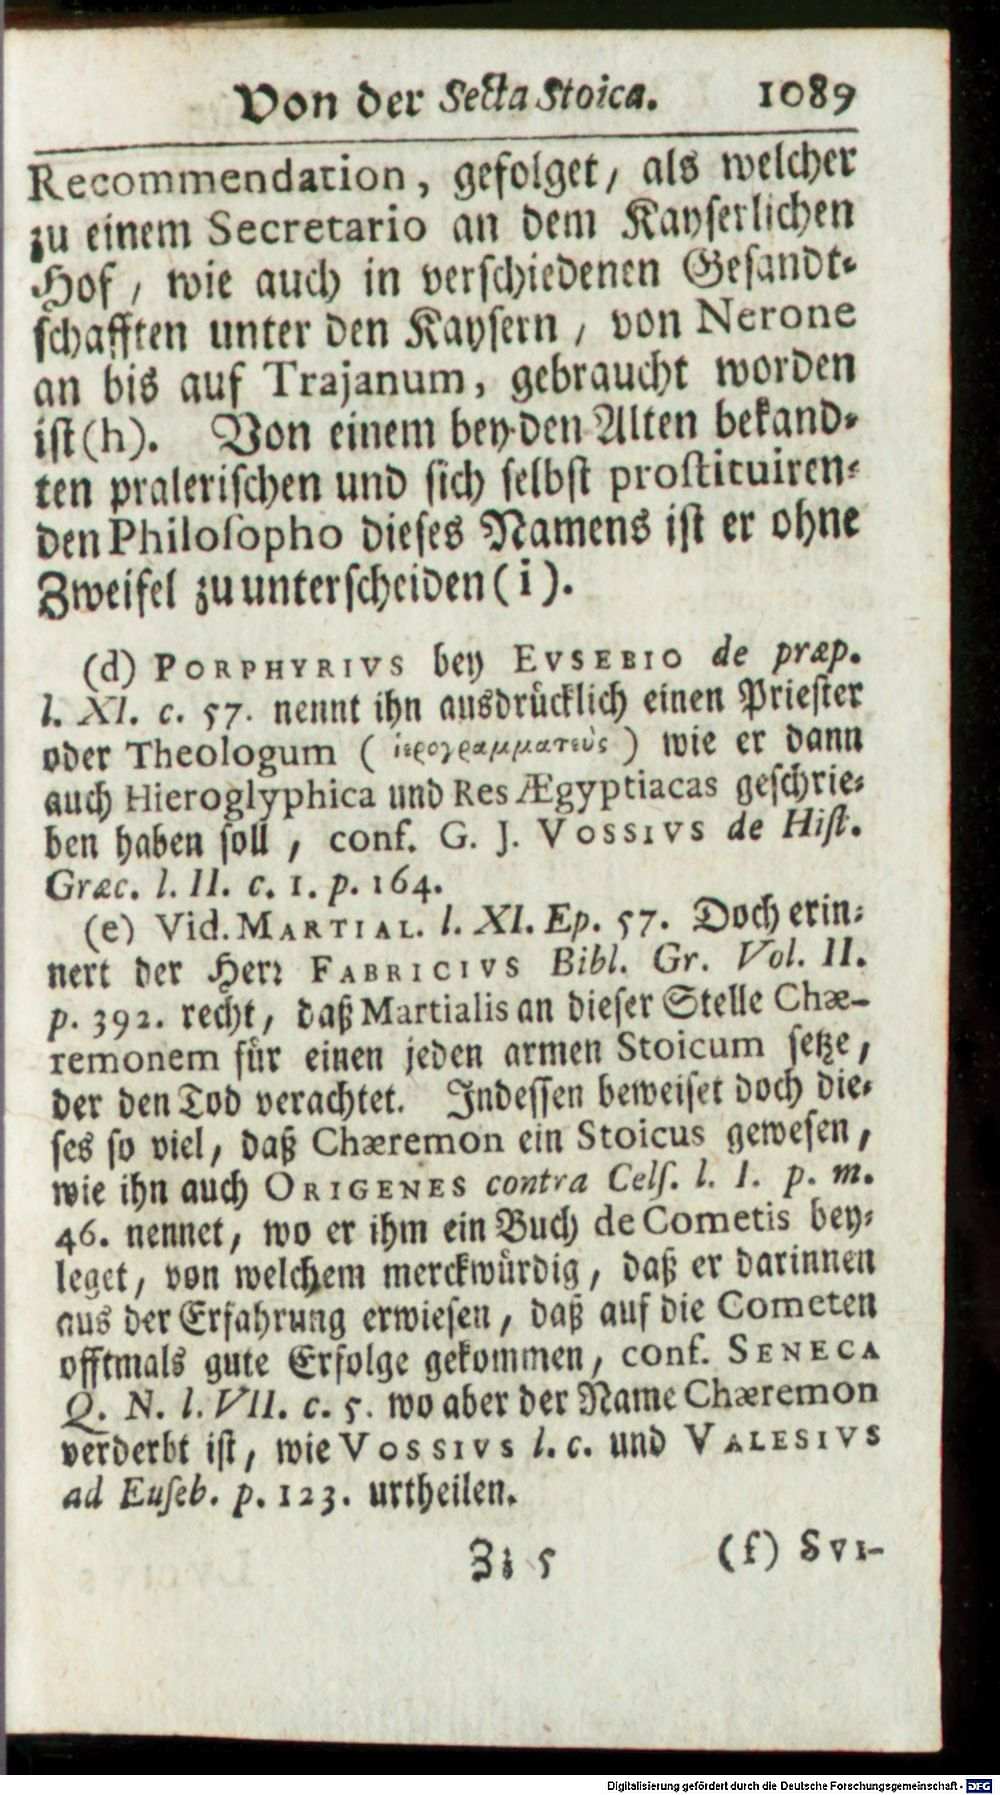 Von der Secta Stoica. 1089
Recommendation, gefolget, als welcher
zu einem Secretario an dem Kayserlichen
Hof, wie auch in verschiedenen Gesandt-
schafften unter den Kaysern, von Nerone
an bis auf Trajanum, gebraucht worden
ist (h). Von einem bey den Alten bekand-
ten pralerischen und sich selbst prostituiren-
den Philosopho dieses Namens ist er ohne
Zweifel zu unterscheiden (i).
(d) PORPHYRIVS bey EVSEBIO de præp.
l. XI. c. 57. nennt ihn ausdrücklich einen Priester
oder Theologum (ἱερογραμματεὺς) wie er dann
auch Hieroglyphica und Res Ægyptiacas geschrie-
ben haben soll, conf. G. J. VOSSIVS de Hist.
Græc. l. II. c. 1. p. 164.
(e) Vid. MARTIAL. l. XI. Ep. 57. Doch erin-
nert der Herr FABRICIVS Bibl. Gr. Vol. II.
p. 392. recht, daß Martialis an dieser Stelle Chæ-
remonem für einen jeden armen Stoicum setze,
der den Tod verachtet. Indessen beweiset doch die-
ses so viel, daß Chæremon ein Stoicus gewesen,
wie ihn auch ORIGENES contra Cels. l. I. p. m.
46. nennet, wo er ihm ein Buch de Cometis bey-
leget, von welchem merckwürdig, daß er darinnen
aus der Erfahrung erwiesen, daß auf die Cometen
offtmals gute Erfolge gekommen, conf. SENECA
Q. N. l. VII. c. 5. wo aber der Name Chæremon
verderbt ist, wie VOSSIVS l. c. und VALESIVS
ad Euseb. p. 123. urtheilen.
Zz 5 (f) SVI-
Digitalisierung gefördert durch die Deutsche Forschungsgemeinschaft - DFG